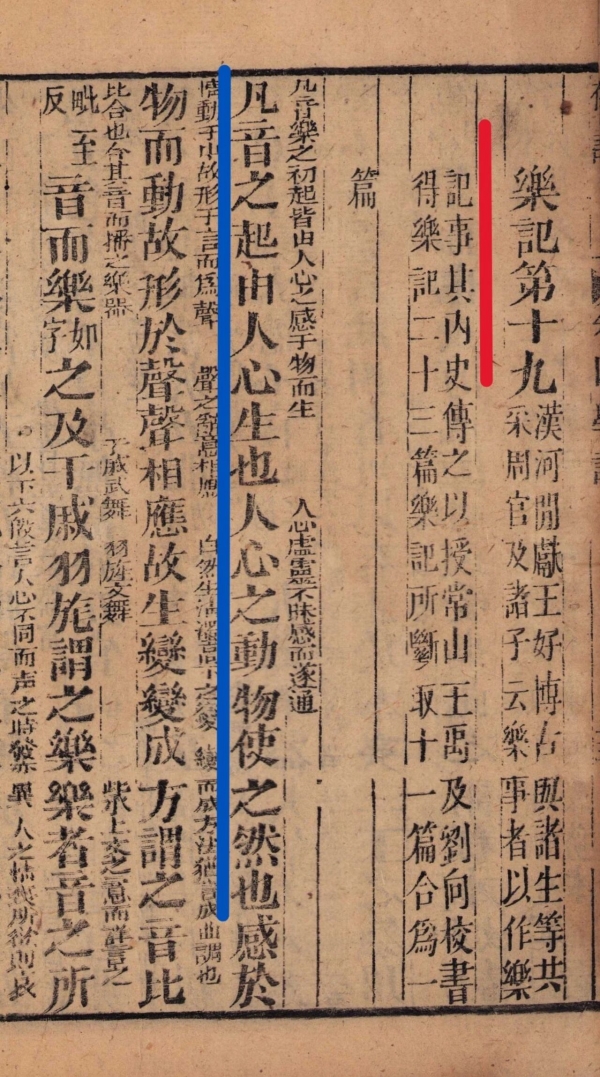 樂記第十九
漢河間獻王好博古與諸生等共
采周官及諸子云樂事者以作樂
記事其内史傳之以授常山王禹及劉向校書
得樂記二十三篇樂記所斷取十一篇合爲一
篇
凡音樂之初起皆由人心之感于物而生 人心虛靈不昧感而遂通
凡音之起由人心生也人心之動物使之然也感於
情動于中故形于言而爲聲 聲之辭意相應 自然生清濁高下之變 變而成方法猶言成曲調也
物而動故形於聲聲相應故生變變成方謂之音比
比合也合其音而播之樂器 干戚武舞 羽旄文舞 上文之意而詳言之
毗至反 音而樂如字之及干戚羽旄謂之樂樂者音之所
以下六 言人心不同而声之 發亦異 人之 所 則哀